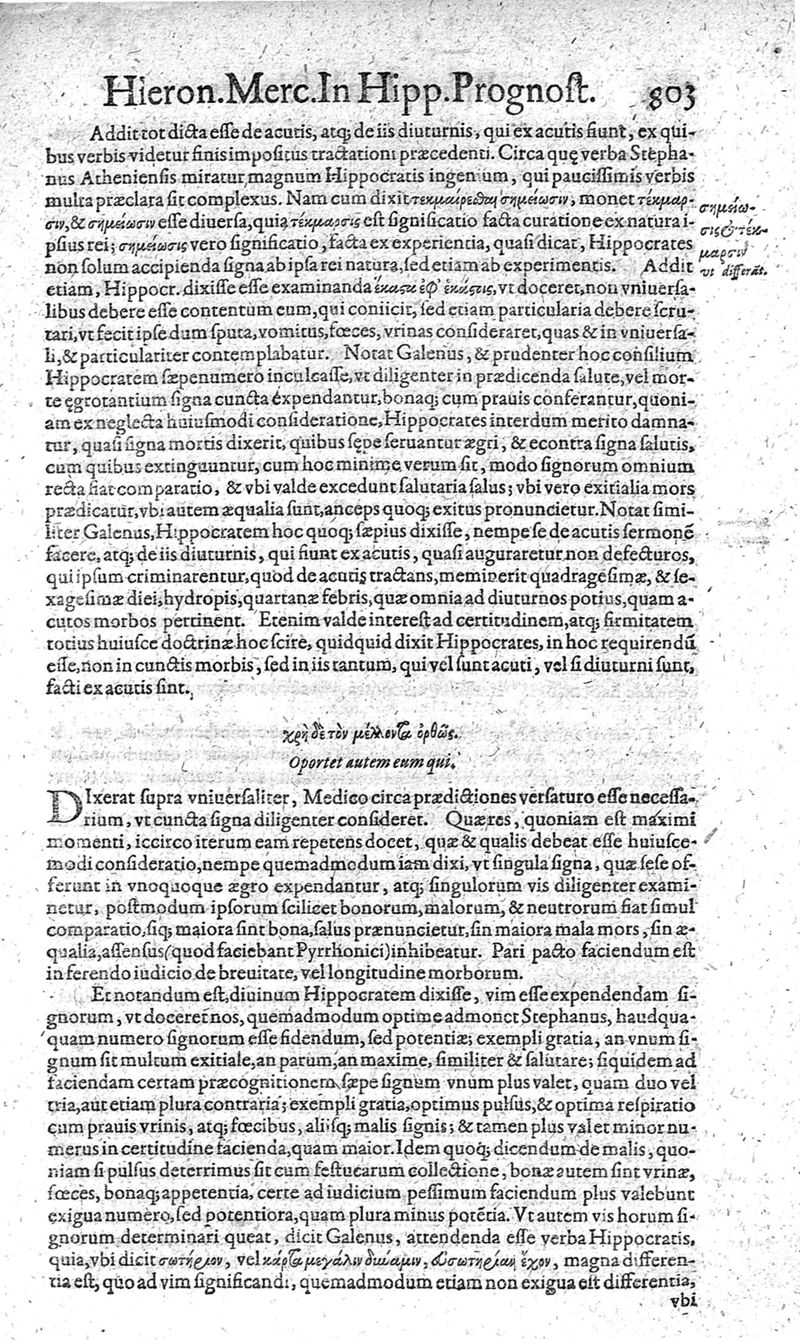 Hieron.Merc.In Hipp.Prognost. 803
Addit tot dicta esse de acutis, atq; de iis diuturnis, qui ex acutis fiunt, ex qui-
bus verbis videtur finis impositus tractationi præcedenti. Circa quę verba Stepha-
nus Atheniensis miratur magnum Hippocratis ingenium, qui paucissimis verbis
multa præclara sit complexus. Nam cum dixit τεκμαίρεσθαι σημείωσιν, monet τέκμαρ-
σιν, & σημείωσιν esse diuersa, quia τέκμαρσις est significatio facta curatione ex natura i-
psius rei; σημείωσις vero significatio, facta ex experientia, quasi dicat, Hippocrates
non solum accipienda signa ab ipsa rei natura, sed etiam ab experimentis. Addit
σημείω-
σις & τέκ-
μαρσιν
vt differāt.
etiam, Hippocr. dixisse esse examinanda ἑκαστα ἐφ' ἑκάστοις, vt doceret, non vniuersa-
libus debere esse contentum eum, qui coniicit, sed etiam particularia debere scru-
tari, vt fecit ipse dum sputa, vomitus, fœces, vrinas consideraret, quas & in vniuersa-
li, & particulariter contemplabatur. Notat Galenus, & prudenter hoc consilium
Hippocratem sæpenumero inculcasse, vt diligenter in prædicenda salute, vel mor-
te ęgrotantium signa cuncta expendantur, bonaq; cum prauis conferantur, quoni-
am ex neglecta huiusmodi consideratione, Hippocrates interdum merito damna-
tur, quasi signa mortis dixerit, quibus sępe seruantur ægri, & econtra signa salutis,
cum quibus extinguuntur, cum hoc minime verum sit, modo signorum omnium
recta fiat comparatio, & vbi valde excedunt salutaria salus; vbi vero exitialia mors
prædicatur, vbi autem æqualia sunt, anceps quoq; exitus pronuncietur. Notat simi-
liter Galenus, Hippocratem hoc quoq; sæpius dixisse, nempe se de acutis sermonē
facere, atq; de iis diuturnis, qui fiunt ex acutis, quasi auguraretur non defecturos,
qui ipsum criminarentur, quod de acutis tractans, meminerit quadragesimæ, & se-
xagesimæ diei, hydropis, quartanæ febris, quæ omnia ad diuturnos potius, quam a-
cutos morbos pertinent. Etenim valde interest ad certitudinem, atq; firmitatem
totius huiusce doctrinæ hoc scire, quidquid dixit Hippocrates, in hoc requirendū
esse, non in cunctis morbis, sed in iis tantum, qui vel sunt acuti, vel si diuturni sunt,
facti ex acutis sint.
χρὴ δὲ τὸν μέλλοντα ὀρθῶς.
Oportet autem eum qui.
DIxerat supra vniuersaliter, Medico circa prædictiones versaturo esse necessa-
rium, vt cuncta signa diligenter consideret. Quæres, quoniam est maximi
momenti, iccirco iterum eam repetens docet, quæ & qualis debeat esse huiusce-
modi consideratio, nempe quemadmodum iam dixi, vt singula signa, quæ sese of-
ferunt in vnoquoque ægro expendantur, atq; singulorum vis diligenter exami-
netur, postmodum ipsorum scilicet bonorum, malorum, & neutrorum fiat simul
comparatio, siq; maiora sint bona, salus prænuncietur, sin maiora mala mors, sin æ-
qualia, assensus (quod faciebant Pyrrhonici) inhibeatur. Pari pacto faciendum est
in ferendo iudicio de breuitate, vel longitudine morborum.
Et notandum est, diuinum Hippocratem dixisse, vim esse expendendam si-
gnorum, vt doceret nos, quemadmodum optime admonet Stephanus, haudqua-
quam numero signorum esse fidendum, sed potentiæ; exempli gratia, an vnum si-
gnum sit multum exitiale, an parum, an maxime, similiter & salutare; siquidem ad
faciendam certam præcognitionem, sæpe signum vnum plus valet, quam duo vel
tria, aut etiam plura contraria; exempli gratia, optimus pulsus, & optima respiratio
cum prauis vrinis, atq; fœcibus, aliisq; malis signis; & tamen plus valet minor nu-
merus in certitudine facienda, quam maior. Idem quoq; dicendum de malis, quo-
niam si pulsus deterrimus sit cum festucarum collectione, bonæ autem sint vrinæ,
fœces, bonaq; appetentia, certe ad iudicium pessimum faciendum plus valebunt
exigua numero, sed potentiora, quam plura minus potētia. Vt autem vis horum si-
gnorum determinari queat, dicit Galenus, attendenda esse verba Hippocratis,
quia, vbi dicit σωτήριον, vel κάρτα μεγάλην δύναμιν, ἐὺσωτηρίαν ἔχον, magna differen-
tia est, quo ad vim significandi, quemadmodum etiam non exigua est differentia,
vbi